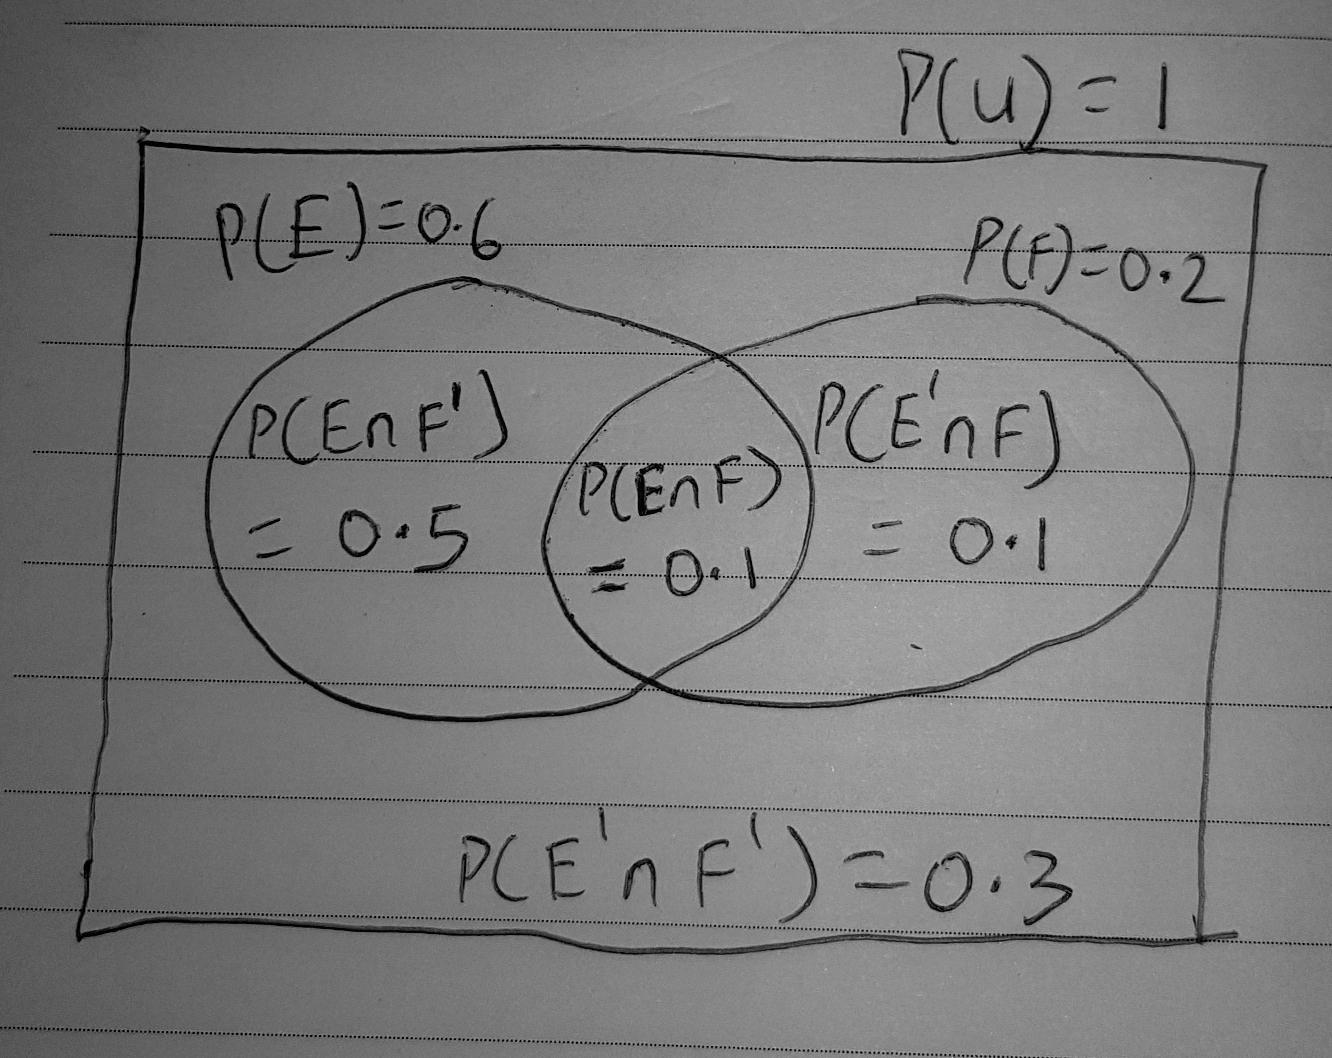 P(U) = 1
P(E)=0.6
P(F)=0.2
P(E∩F')
= 0.5
P(E∩F)
= 0.1
P(E'∩F)
= 0.1
P(E'∩F')=0.3